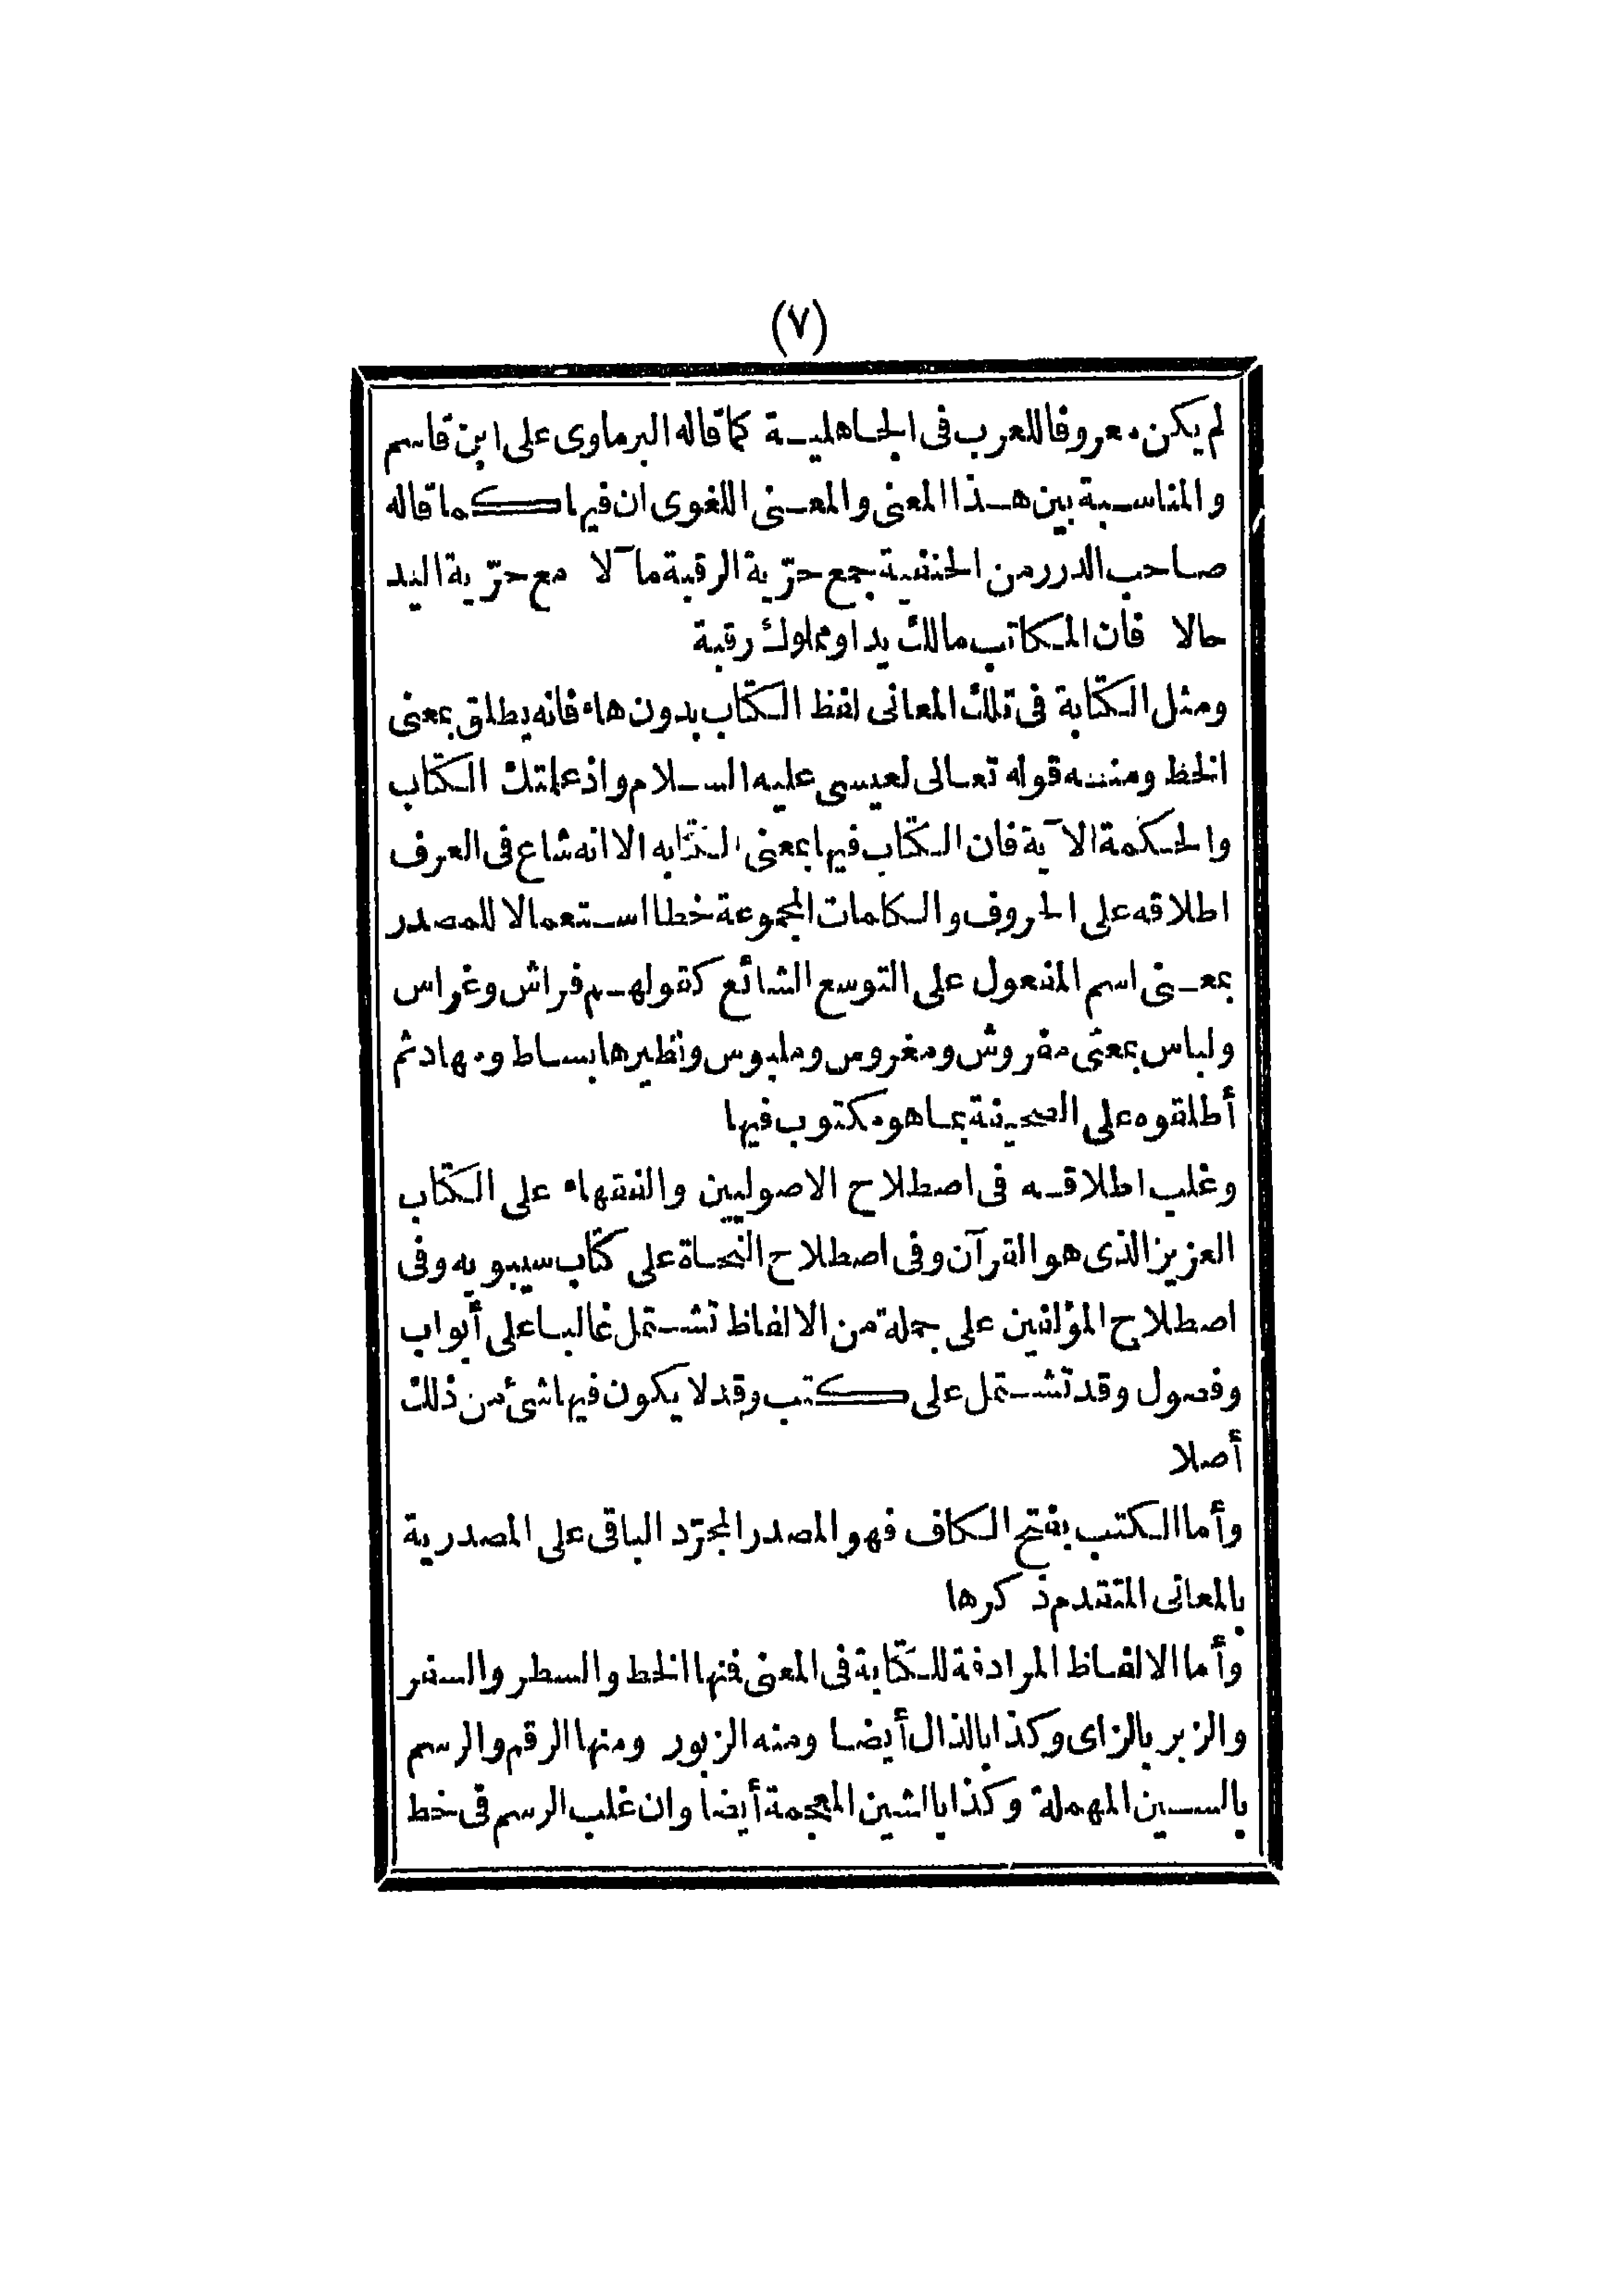 (٧)
لم يكن معروفا للعرب فى الجاهلية كما قاله البرماوى على ابن قاسم
والمناسبة بين هذا المعنى والمعنى اللغوى ان فيها كما قاله
صاحب الدرر من الحنفية جمع حرّية الرقبة مآلا مع حرّية اليد
حالا فان المكاتب مالك يدا ومملوك رقبة
ومثل الكتابة فى تلك المعانى لفظ الكتاب بدون هاء فانه يطلق بمعنى
الخط ومنه قوله تعالى لعيسى عليه السلام واذ علمتك الكتاب
والحكمة الآية فان الكتاب فيها بمعنى الكتابه الا انه شاع فى العرف
اطلاقه على الحروف والكلمات المجموعة خطا استعمالا للمصدر
بمعنى اسم المفعول على التوسع الشائع كقولهم فراش وغراس
ولباس بمعنى مفروش ومغروس وملبوس ونظيرها بساط ومهاد ثم
أطلقوه على الصحيفة بما هو مكتوب فيها
وغلب اطلاقه فى اصطلاح الاصوليين والفقهاء على الكتاب
العزيز الذى هو القرآن وفى اصطلاح النحاة على كتاب سيبويه وفى
اصطلاح المؤلفين على جملة من الالفاظ تشتمل غالبا على أبواب
وفصول وقد تشتمل على كتب وقد لا يكون فيها شئ من ذلك
أصلا
وأما الكتب بفتح الكاف فهو المصدر المجرّد الباقى على المصدرية
بالمعانى المتقدم ذكرها
وأما الالفاظ المرادفة للكتابة فى المعنى فنها الخط والسطر والسفر
والزبر بالزاى وكذا بالذال أيضا ومنه الزبور ومنها الرقم والرسم
بالسين المهملة وكذا بالشين المعجمة أيضا وان غلب الرسم فى خط